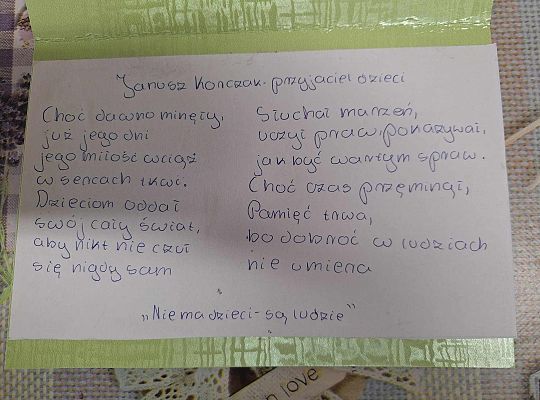 Janusz Korczak - przyjaciel dzieci
Choć dawno minęły,
już jego dni
jego miłość wciąż
w sercach tkwi.
Dzieciom oddał
swój cały świat,
aby nikt nie czuł
się nigdy sam
Słuchał marzeń,
uczył praw, pokazywał,
jak być wartym spraw.
Choć czas przeminął,
Pamięć trwa,
bo dobroć w ludziach
nie umiera
„Nie ma dzieci - są ludzie"
love